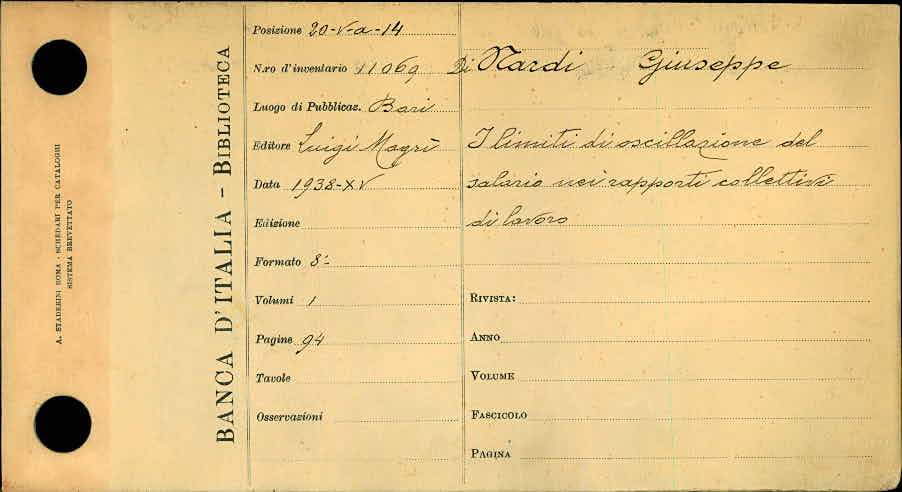 A. STADERINI ROMA - SCHEDARI PER CATALOGHI
SISTEMA BREVETTATO
BANCA D'ITALIA - BIBLIOTECA
Posizione 20-V-a-14
N.ro d'inventario 11069
Luogo di Pubblicaz. Bari
Editore Luigi Magrì
Data 1938-XV
Edizione
Formato 8°
Volumi 1
Pagine 94
Tavole
Osservazioni
Di Nardi Giuseppe
I limiti di oscillazione del
salario nei rapporti collettivi
di lavoro
RIVISTA:
ANNO
VOLUME
FASCICOLO
PAGINA